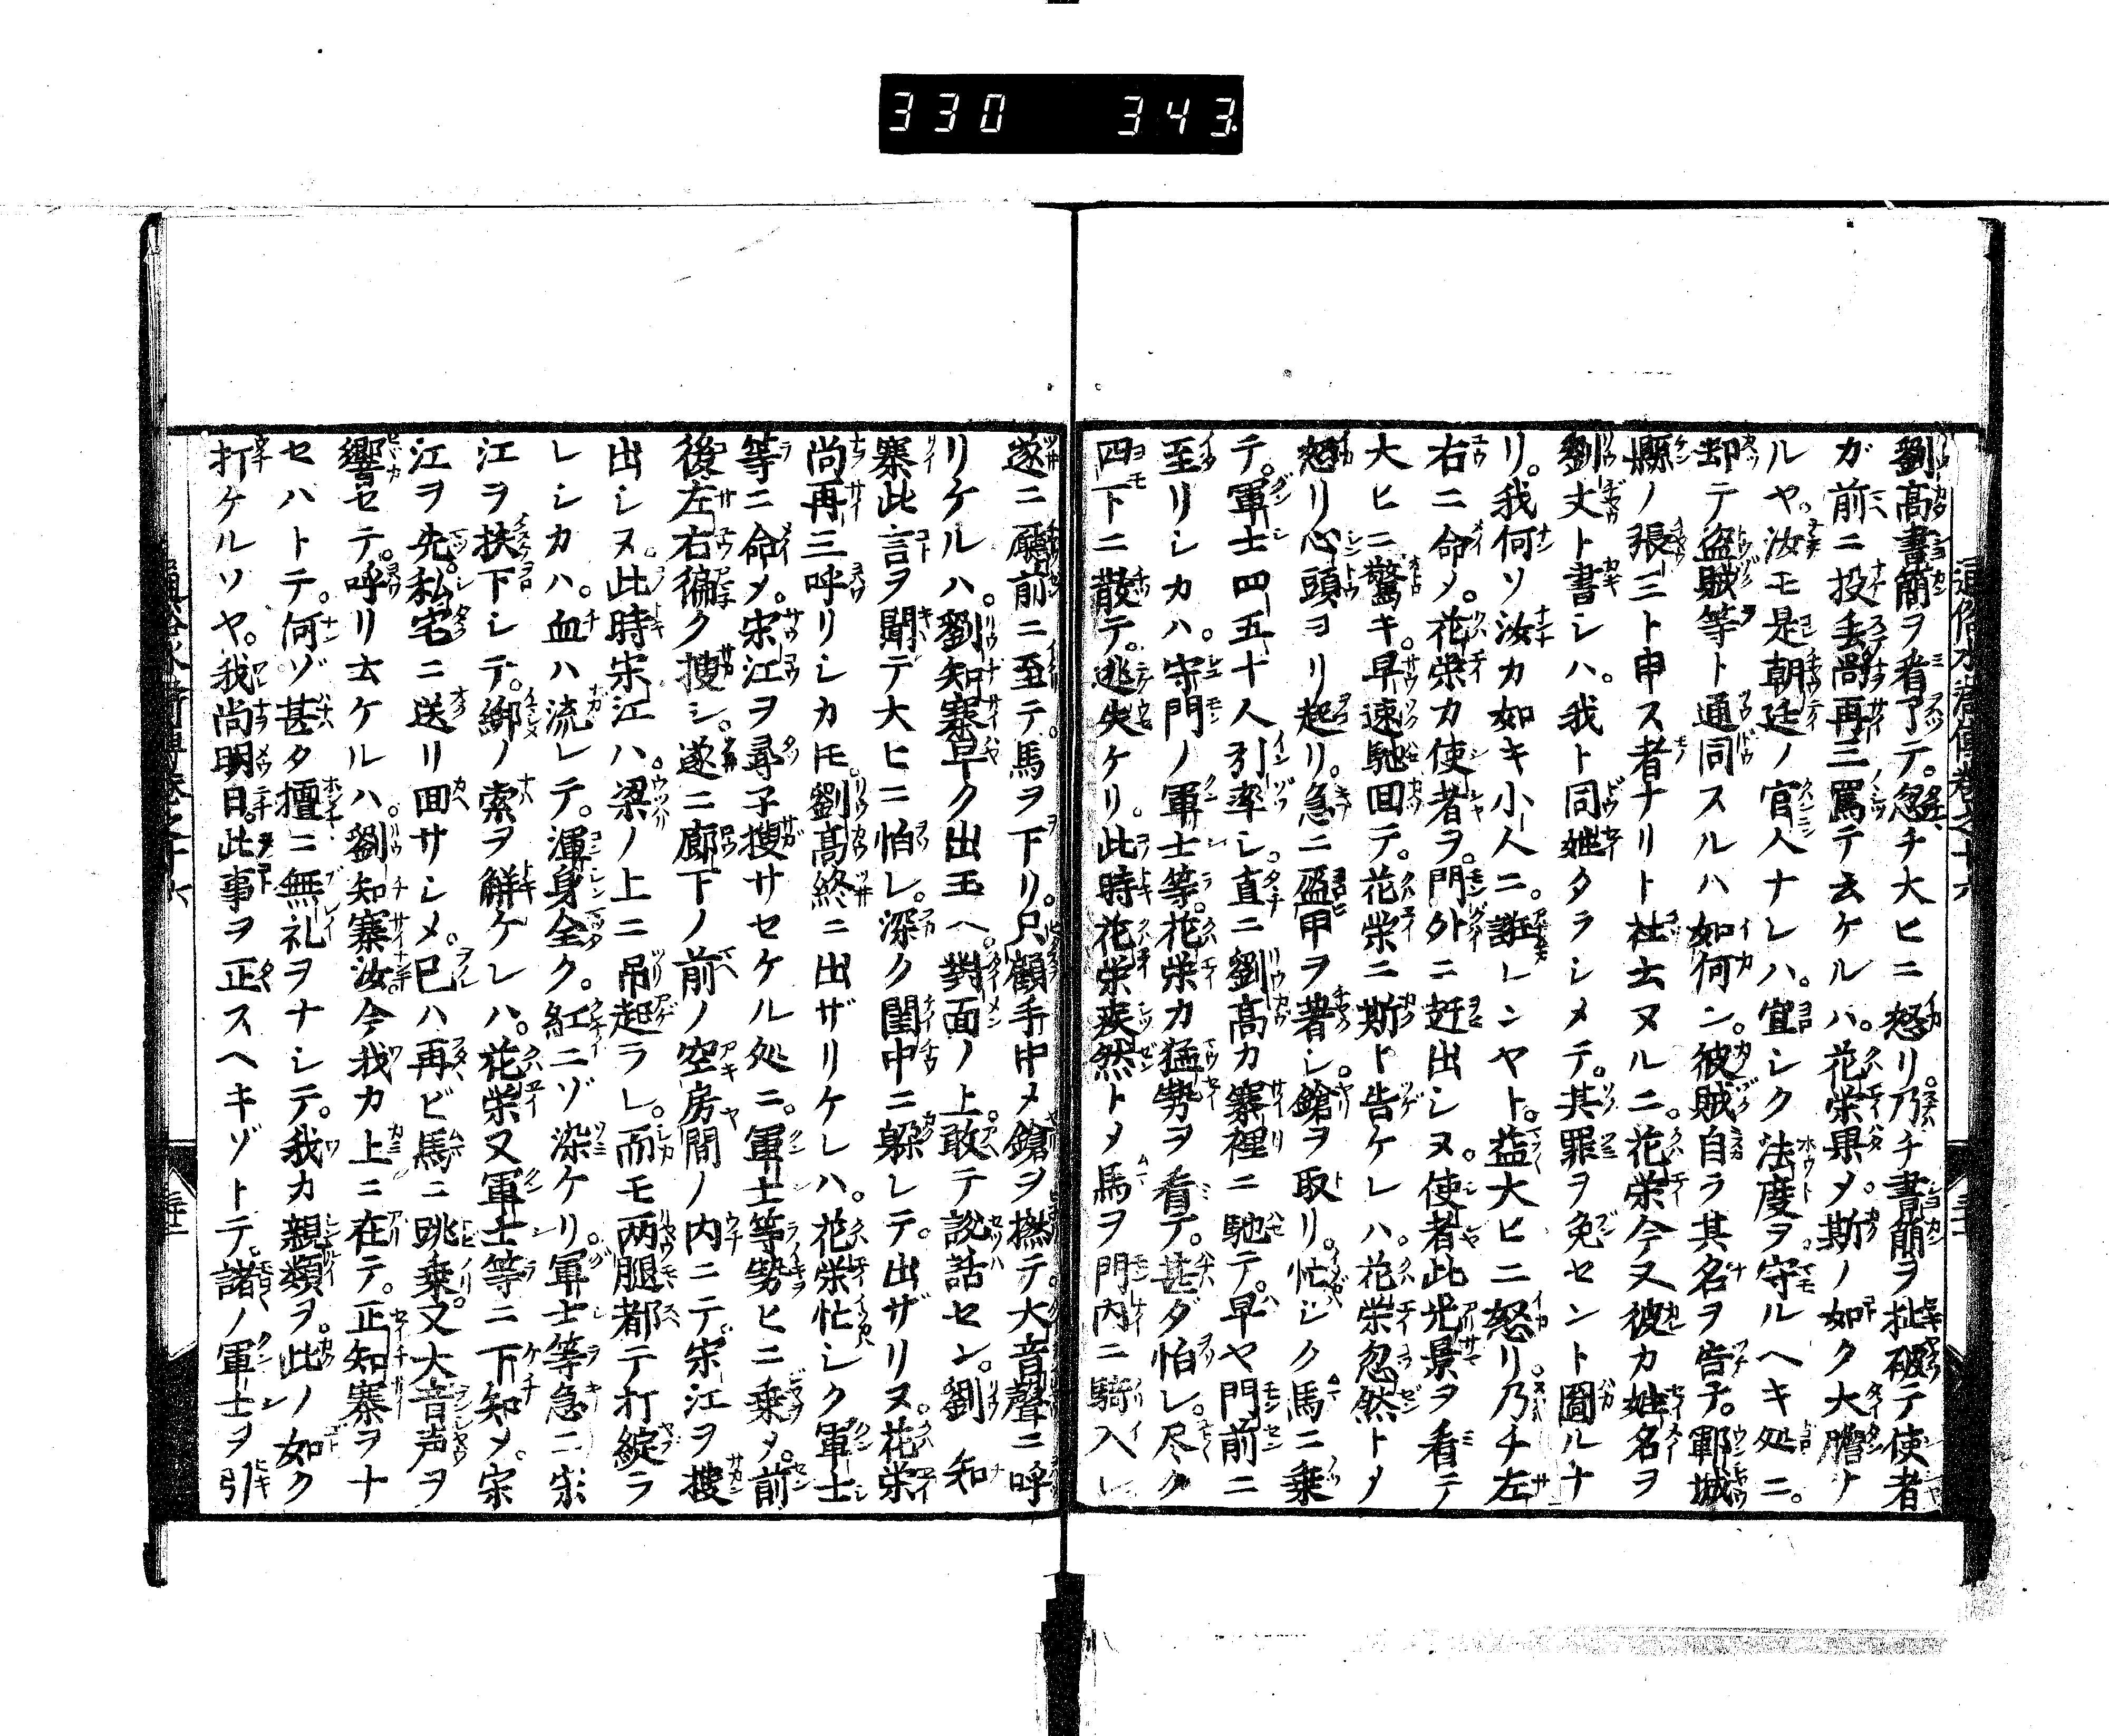 330 343
劉高書簡ヲ看了テ。忽チ大ヒニ怒リ。乃チ書簡ヲ扯破テ使者
ガ前ニ投丢尚再三罵テ云ケルハ。花栄果メ斯ノ如ク大膽ナ
ルヤ。汝モ是朝廷ノ官人ナレハ。宜シク法度ヲ守ルヘキ処ニ。
却テ盗賊等ト通同スルハ如何ン。彼賊自ラ其名ヲ告テ。鄆城
縣ノ張三ト申ス者ナリト社云ヌルニ。花栄今又彼カ姓名ヲ
劉丈ト書シハ。我ト同姓タラシメテ。其罪ヲ免セント圖ルナ
リ。我何ソ汝カ如キ小人ニ。誑レンヤト。益大ヒニ怒リ乃チ左
右ニ命メ。花栄カ使者ヲ。門外ニ赶出シヌ。使者此光景ヲ看テ
大ヒニ驚キ。早速馳回テ。花栄ニ斯ト告ケレハ。花栄忽然トメ
怒リ心頭ヨリ起リ。急ニ盔甲ヲ著シ。鎗ヲ取リ。忙シク馬ニ乗
テ。軍士四五十人引率シ。直ニ劉高カ寨裡ニ馳テ。早ヤ門前ニ
至リシカハ。守門ノ軍士等。花栄カ猛勢ヲ看テ。甚ダ怕レ。尽ク
四下ニ散テ。逃失ケリ。此時花栄疾然トメ馬ヲ門内ニ騎入レ
遂ニ廳前ニ至テ。馬ヲ下リ。只顧手中メ鎗ヲ撚テ。大音聲ニ呼
リケルハ。劉知寨早ク出玉ヘ。對面ノ上敢テ説話セン。劉知
寨此言ヲ聞デ大ヒニ怕レ。深ク閨中ニ躱レテ。出ザリヌ。花栄
尚再三呼リシカモ。劉高終ニ出ザリケレハ。花栄忙シク軍士
等ニ命メ。宋江ヲ尋子搜サセケル処ニ。軍士等勢ヒニ乗メ。前
後左右徧ク搜シ。遂ニ廊下ノ前ノ空房間ノ内ニテ。宋江ヲ搜
出シヌ。此時宋江ハ。梁ノ上ニ吊起ラレ。而モ两腿都テ打綻ラ
レシカハ。血ハ流レテ。渾身全ク。紅ニゾ染ケリ。軍士等急ニ宋
江ヲ扶下シテ。綁ノ索ヲ觧ケレハ。花栄又軍士等ニ下知メ。宋
江ヲ先。私宅ニ送リ回サシメ。已ハ再ビ馬ニ跳乗。又大音声ヲ
響セテ。呼リ云ケルハ。劉知寨汝。今我カ上ニ在テ。正知寨ヲナ
セハトテ。何ゾ甚タ擅ニ無礼ヲナシテ。我カ親類ヲ。此ノ如ク
打ケルソヤ。我尚明日。此事ヲ正スヘキゾトテ。諸ノ軍士ヲ引